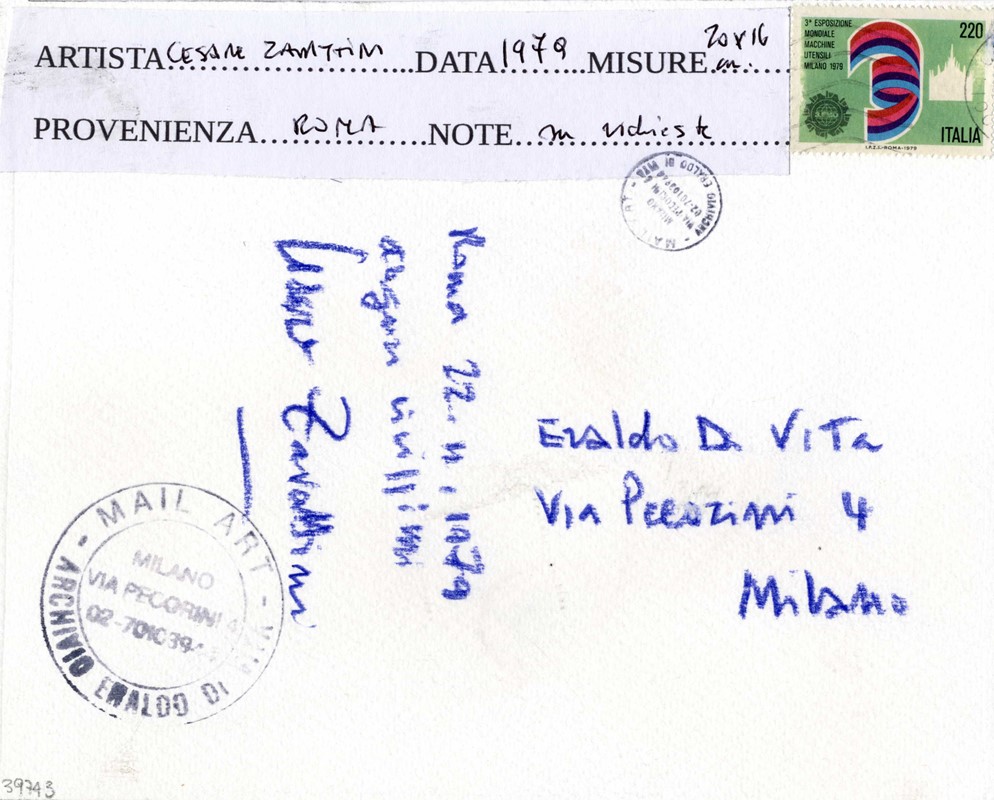 ARTISTA CESARE ZAVATTINI DATA 1979 MISURE 20x16 cm.
PROVENIENZA ROMA NOTE su richiesta
3ª ESPOSIZIONE
MONDIALE
MACCHINE
UTENSILI
MILANO 1979
220
ITALIA
I.P.Z.S.-ROMA-1979
MAIL ART - ARCHIVIO ERALDO DI VITA
MILANO
VIA PECORINI 4
Roma 22. 11. 1979
auguri
Cesare Zavattini
Eraldo Di Vita
Via Pecorini 4
Milano
MAIL ART - ARCHIVIO ERALDO DI VITA
MILANO
VIA PECORINI 4
39743